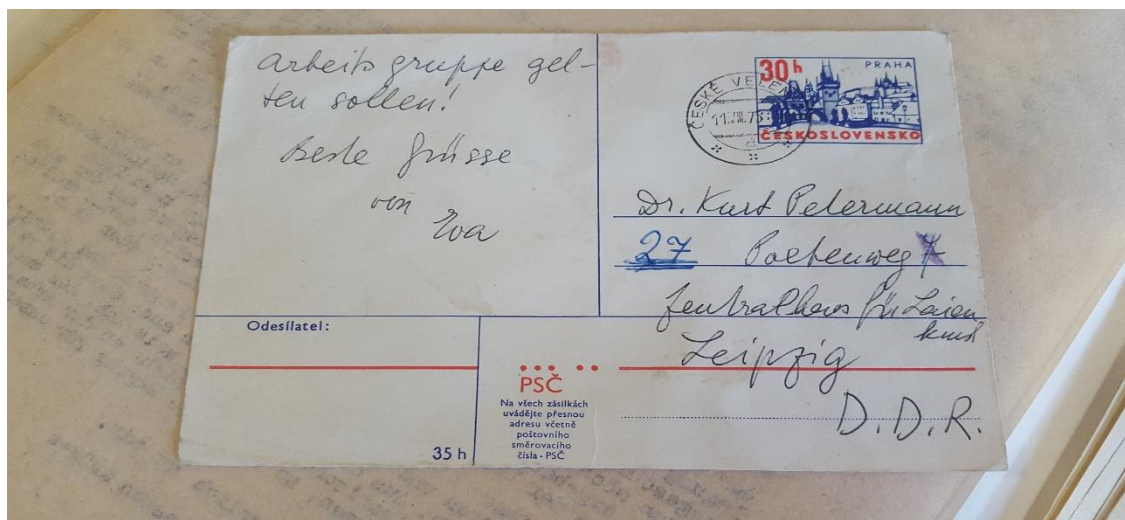 Arbeitsgruppe gel-
ten sollen!
Beste Grüsse
von
Eva
30h
PRAHA
ČESKOSLOVENSKO
ČESKÉ VELEN
11. 75
a
Dr. Kurt Petermann
27 Poetenweg
Zentralhaus für Laien
kunst
Leipzig
D.D.R.
Odesílatel:
35 h
PSČ
Na všech zásilkách
uvádějte přesnou
adresu včetně
poštovního
směrovacího
čísla - PSČ